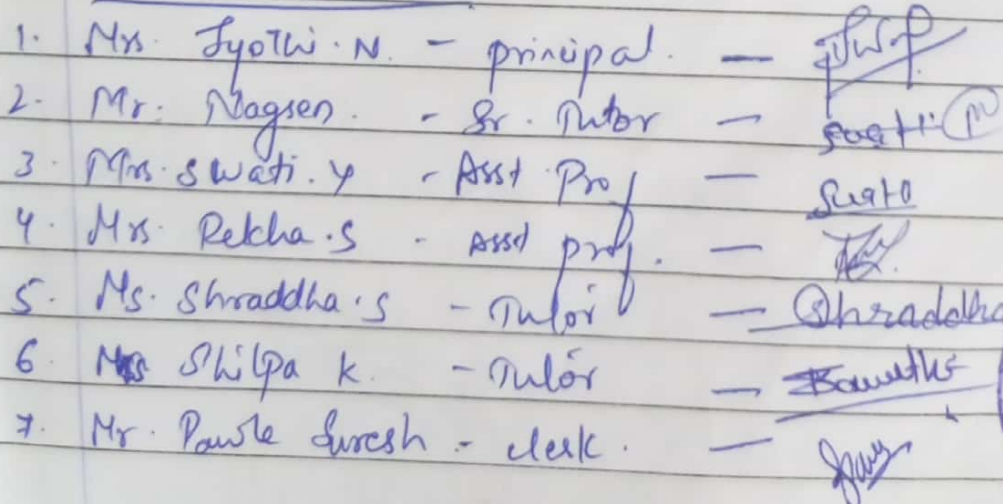 1. Mrs. Jyothi. N. - principal. -
2. Mr. Nagsen. - Sr. Tutor -
3. Mrs. swati. y - Asst Prof -
4. Mrs. Rekha. S - Asst prof. -
5. Ms. Shraddha. S - Tutor - Shraddha
6. Ms Shilpa K. - Tutor -
7. Mr. Pawle Suresh - clerk. -